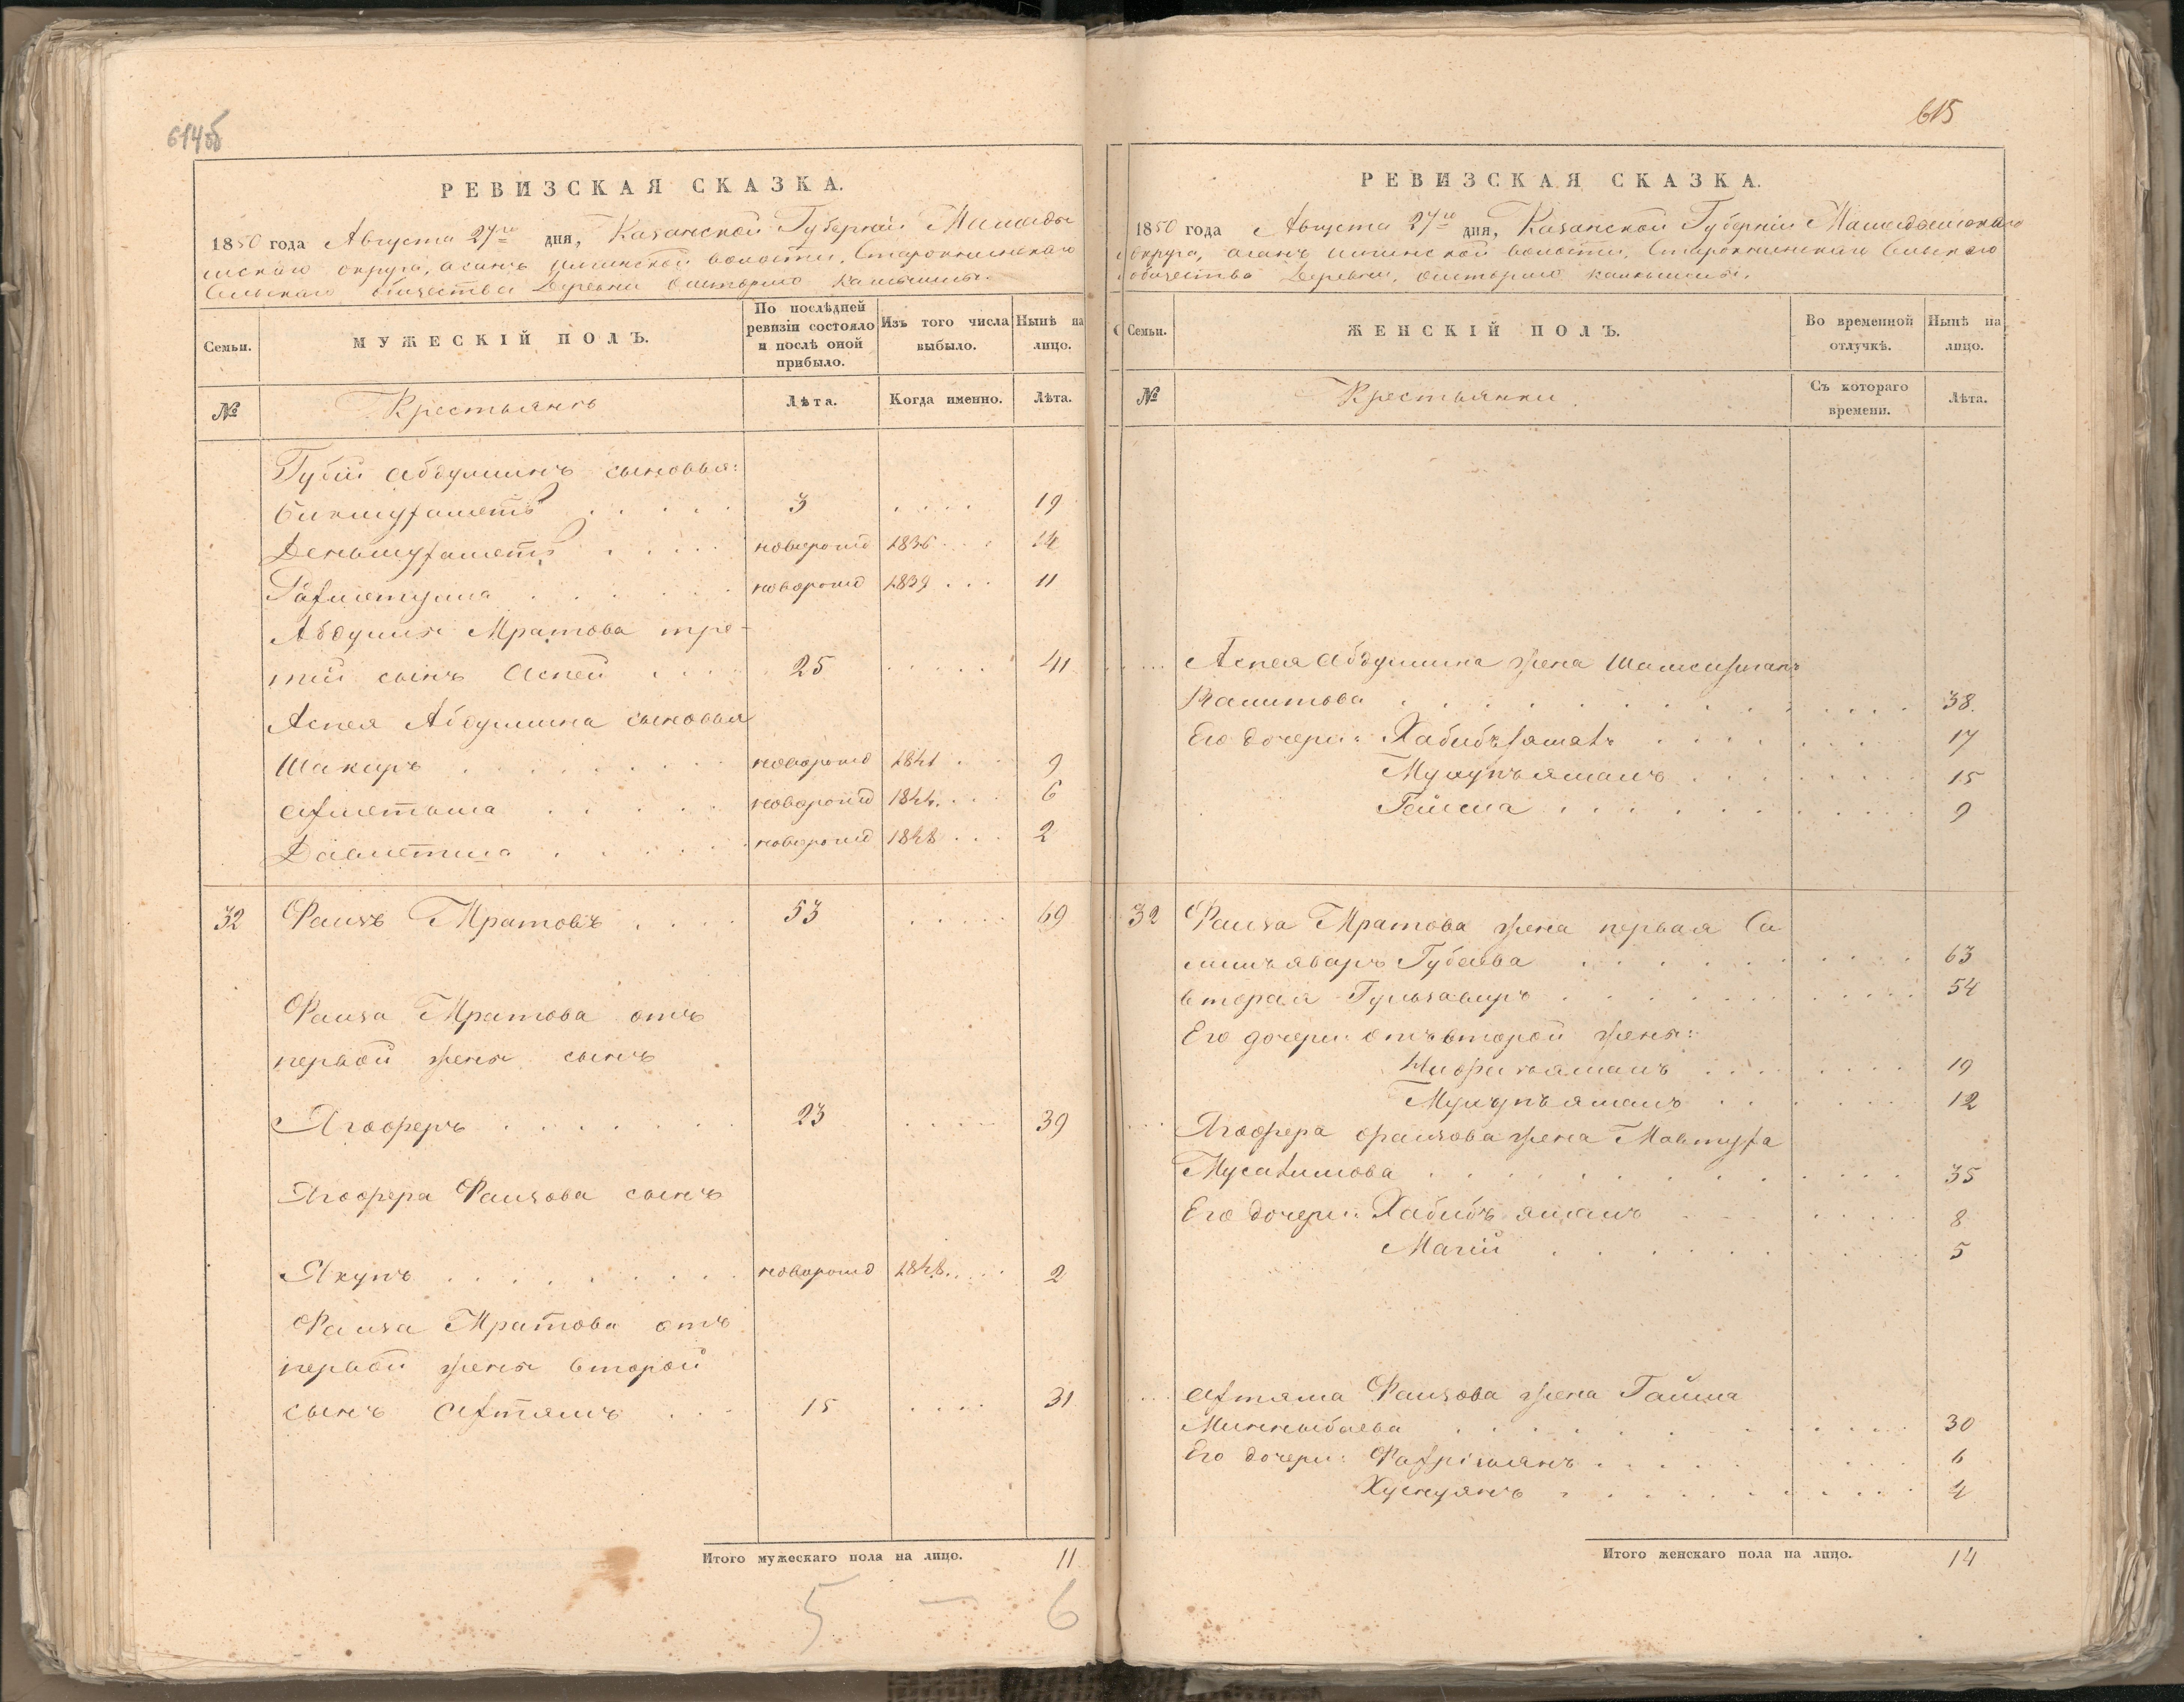 614об
РЕВИЗСКАЯ СКАЗКА.
1850 года Августа 27го дня, Казанской Губерніи Мамады
шскаго округа, асанъ илгинской волости, Старокнинскаго
Сельскаго общества Деревни
Семьи.
МУЖЕСКІЙ ПОЛЪ.
По послѣдней ревизіи состояло и послѣ оной прибыло.
Изъ того числа выбыло.
Нынѣ на лицо.
№
Крестьянъ
Лѣта.
Когда именно.
Лѣта.
Губей Абдуллинъ сыновья:
Бикмухаметъ 3 19
Деньмухаметъ новорожд 1836 14
новорожд 1839 11
Абдуллы Мратова тре-
тій сынъ Аспей 25 41
Аспея Абдуллина сыновья
Шакиръ новорожд 1841 9
Ахметьша новорожд 1844 6
Давлетша новорожд 1848 2
32 Фаизъ Мратовъ 53 69
Фаиза Мратова отъ
первой жены сынъ
Ягоферъ 23 39
Ягофера Фаизова сынъ
Якупъ новорожд 1848 2
Фаиза Мратова отъ
первой жены второй
сынъ Ахтямъ 15 31
Итого мужескаго пола на лицо. 11
5 — 6
615
РЕВИЗСКАЯ СКАЗКА.
1850 года Августа 27го дня, Казанской Губерніи Мамадышскаго
округа, асанъ илгинской волости, Старокнинскаго Сельскаго
общества Деревни
Семьи.
ЖЕНСКІЙ ПОЛЪ.
Во временной отлучкѣ.
Нынѣ на лицо.
№
Крестьянки
Съ котораго времени.
Лѣта.
Аспея Абдуллина жена
38
Его дочери: 17
15
9
32 Фаиза Мратова жена первая Са
Губаева 63
вторая 54
Его дочери отъ второй жены:
19
12
Ягофера Фаизова жена Мавтуха
35
Его дочери: Хабибъ ямалъ 8
Магій 5
Ахтяма Фаизова жена Гайша
Миннибаева 30
Его дочери: 6
Хуснуянъ
Итого женскаго пола на лицо. 14